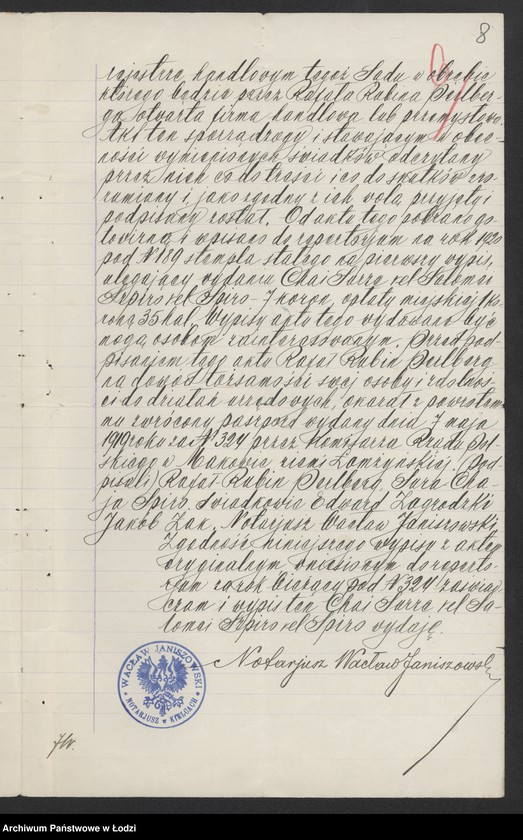 8
rejestrze handlowym tegoż Sądu w obrębie
którego będzie przez Rafała Rubina Perlber-
ga otwarta firma handlowa lub przemysłowa.
Akt ten sporządzony i stawającym w obec-
ności wymienionych świadków odczytany
przez nich co do treści i co do skutków zro-
zumiany i jako zgodny z ich wolą przyjęty i
podpisany został. Od aktu tego pobrano go-
towizną i wpisano do repertoryum na rok 1920
pod № 189 stempla stałego na pierwszy wypis,
ulegający wydaniu Chai Surze vel Salomei
Szpiro vel Spiro – 7 koron, opłaty miejskiej 1 ko-
ronę 35 hal. Wypisy aktu tego wydawane być
mogą osobom zainteresowanym. Przed pod-
pisaniem tego aktu Rafał Rubin Perlberg
na dowód tożsamości swej osoby i zdolnoś-
ci do działań urzędowych, okazał z powrotem
mu zwrócony paszport wydany dnia 7 maja
1919 roku za № 324 przez Komisarza Rządu Pol-
skiego w Makowie ziemi Łomżyńskiej. Pod-
pisali: Rafał Rubin Perlberg, Sura Cha-
ja Spiro, świadkowie Edward Zagrodzki
Jakób Żak. Notarjusz Wacław Janiszowski
Zgodność niniejszego wypisu z aktem
oryginalnym wniesionym do reperto-
rjum za rok bieżący pod № 324 zaświad-
czam i wypis ten Chai Surze vel Sa-
lomei Szpiro vel Spiro wydaję.
Notarjusz Wacław Janiszowski
WACŁAW JANISZOWSKI
NOTARJUSZ w KIELCACH
Archiwum Państwowe w Łodzi